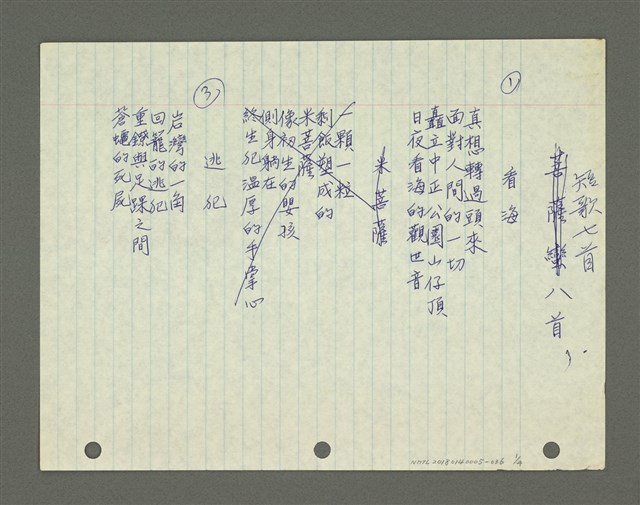 短歌七首
菩薩蠻八首
①
看海
真想轉過頭來
面對人間的一切
矗立中正公園山仔頂
日夜看海的觀世音
米菩薩
一顆一粒
剩飯塑成的
米菩薩
像初生的嬰孩
側身躺在
終生犯溫厚的手掌心
③
逃犯
岩灣的一角
回籠的逃犯
重鐐與足踝之間
蒼蠅的死屍
NMTL20180140005-036 1/4